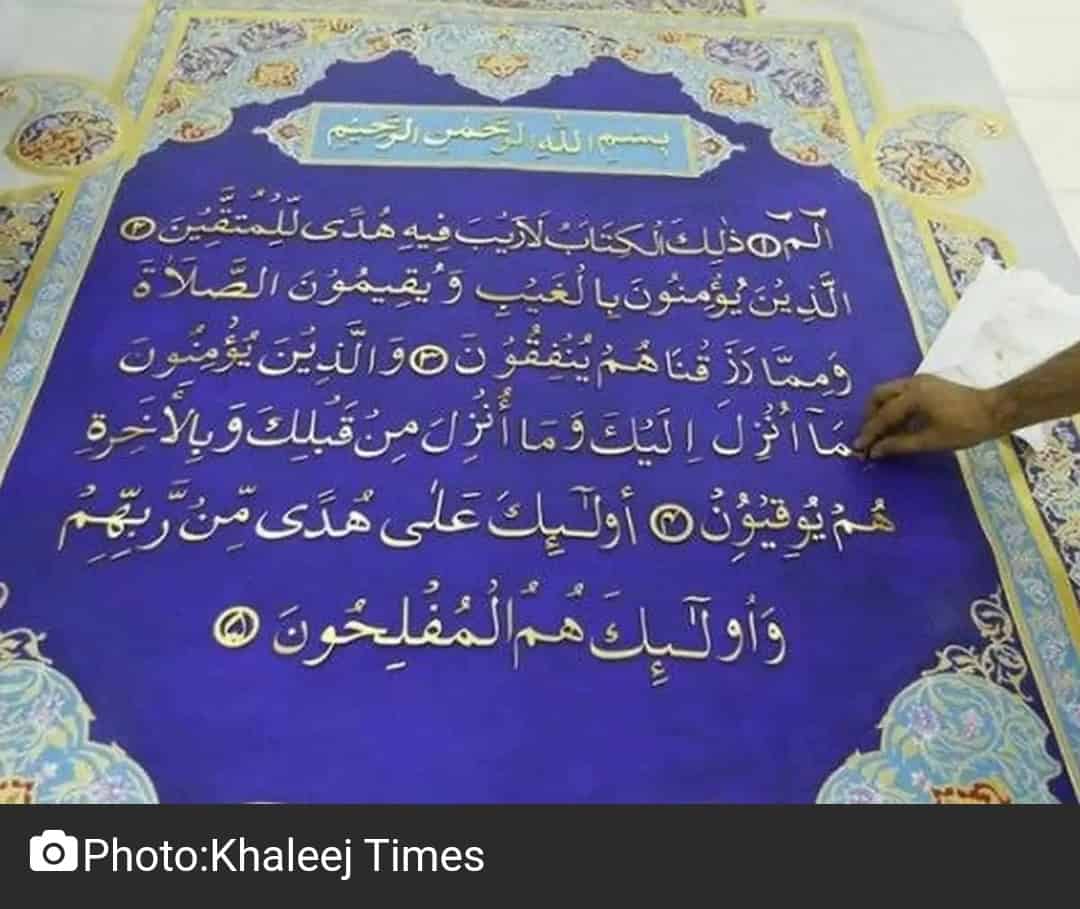 بِسْمِ اللهِ الرَّحْمٰنِ الرَّحِيْمِ
الٓمٓ ﴿۱﴾ ذٰلِكَ الْكِتَابُ لَارَيْبَ فِيْهِ هُدًى لِّلْمُتَّقِيْنَ ﴿۲﴾
الَّذِيْنَ يُؤْمِنُونَ بِالْغَيْبِ وَيُقِيمُوْنَ الصَّلَاةَ
وَمِمَّا رَزَقْنَاهُمْ يُنْفِقُوْنَ ﴿۳﴾ وَالَّذِيْنَ يُؤْمِنُونَ
مَآ اُنْزِلَ اِلَيْكَ وَمَا أُنْزِلَ مِنْ قَبْلِكَ وَبِالْأَخِرَةِ
هُمْ يُوقِنُوْنَ ﴿۴﴾ أُولٰٓئِكَ عَلٰى هُدًى مِّنْ رَّبِّهِمْ
وَأُولٰٓئِكَ هُمُ الْمُفْلِحُونَ ﴿۵﴾
Photo:Khaleej Times